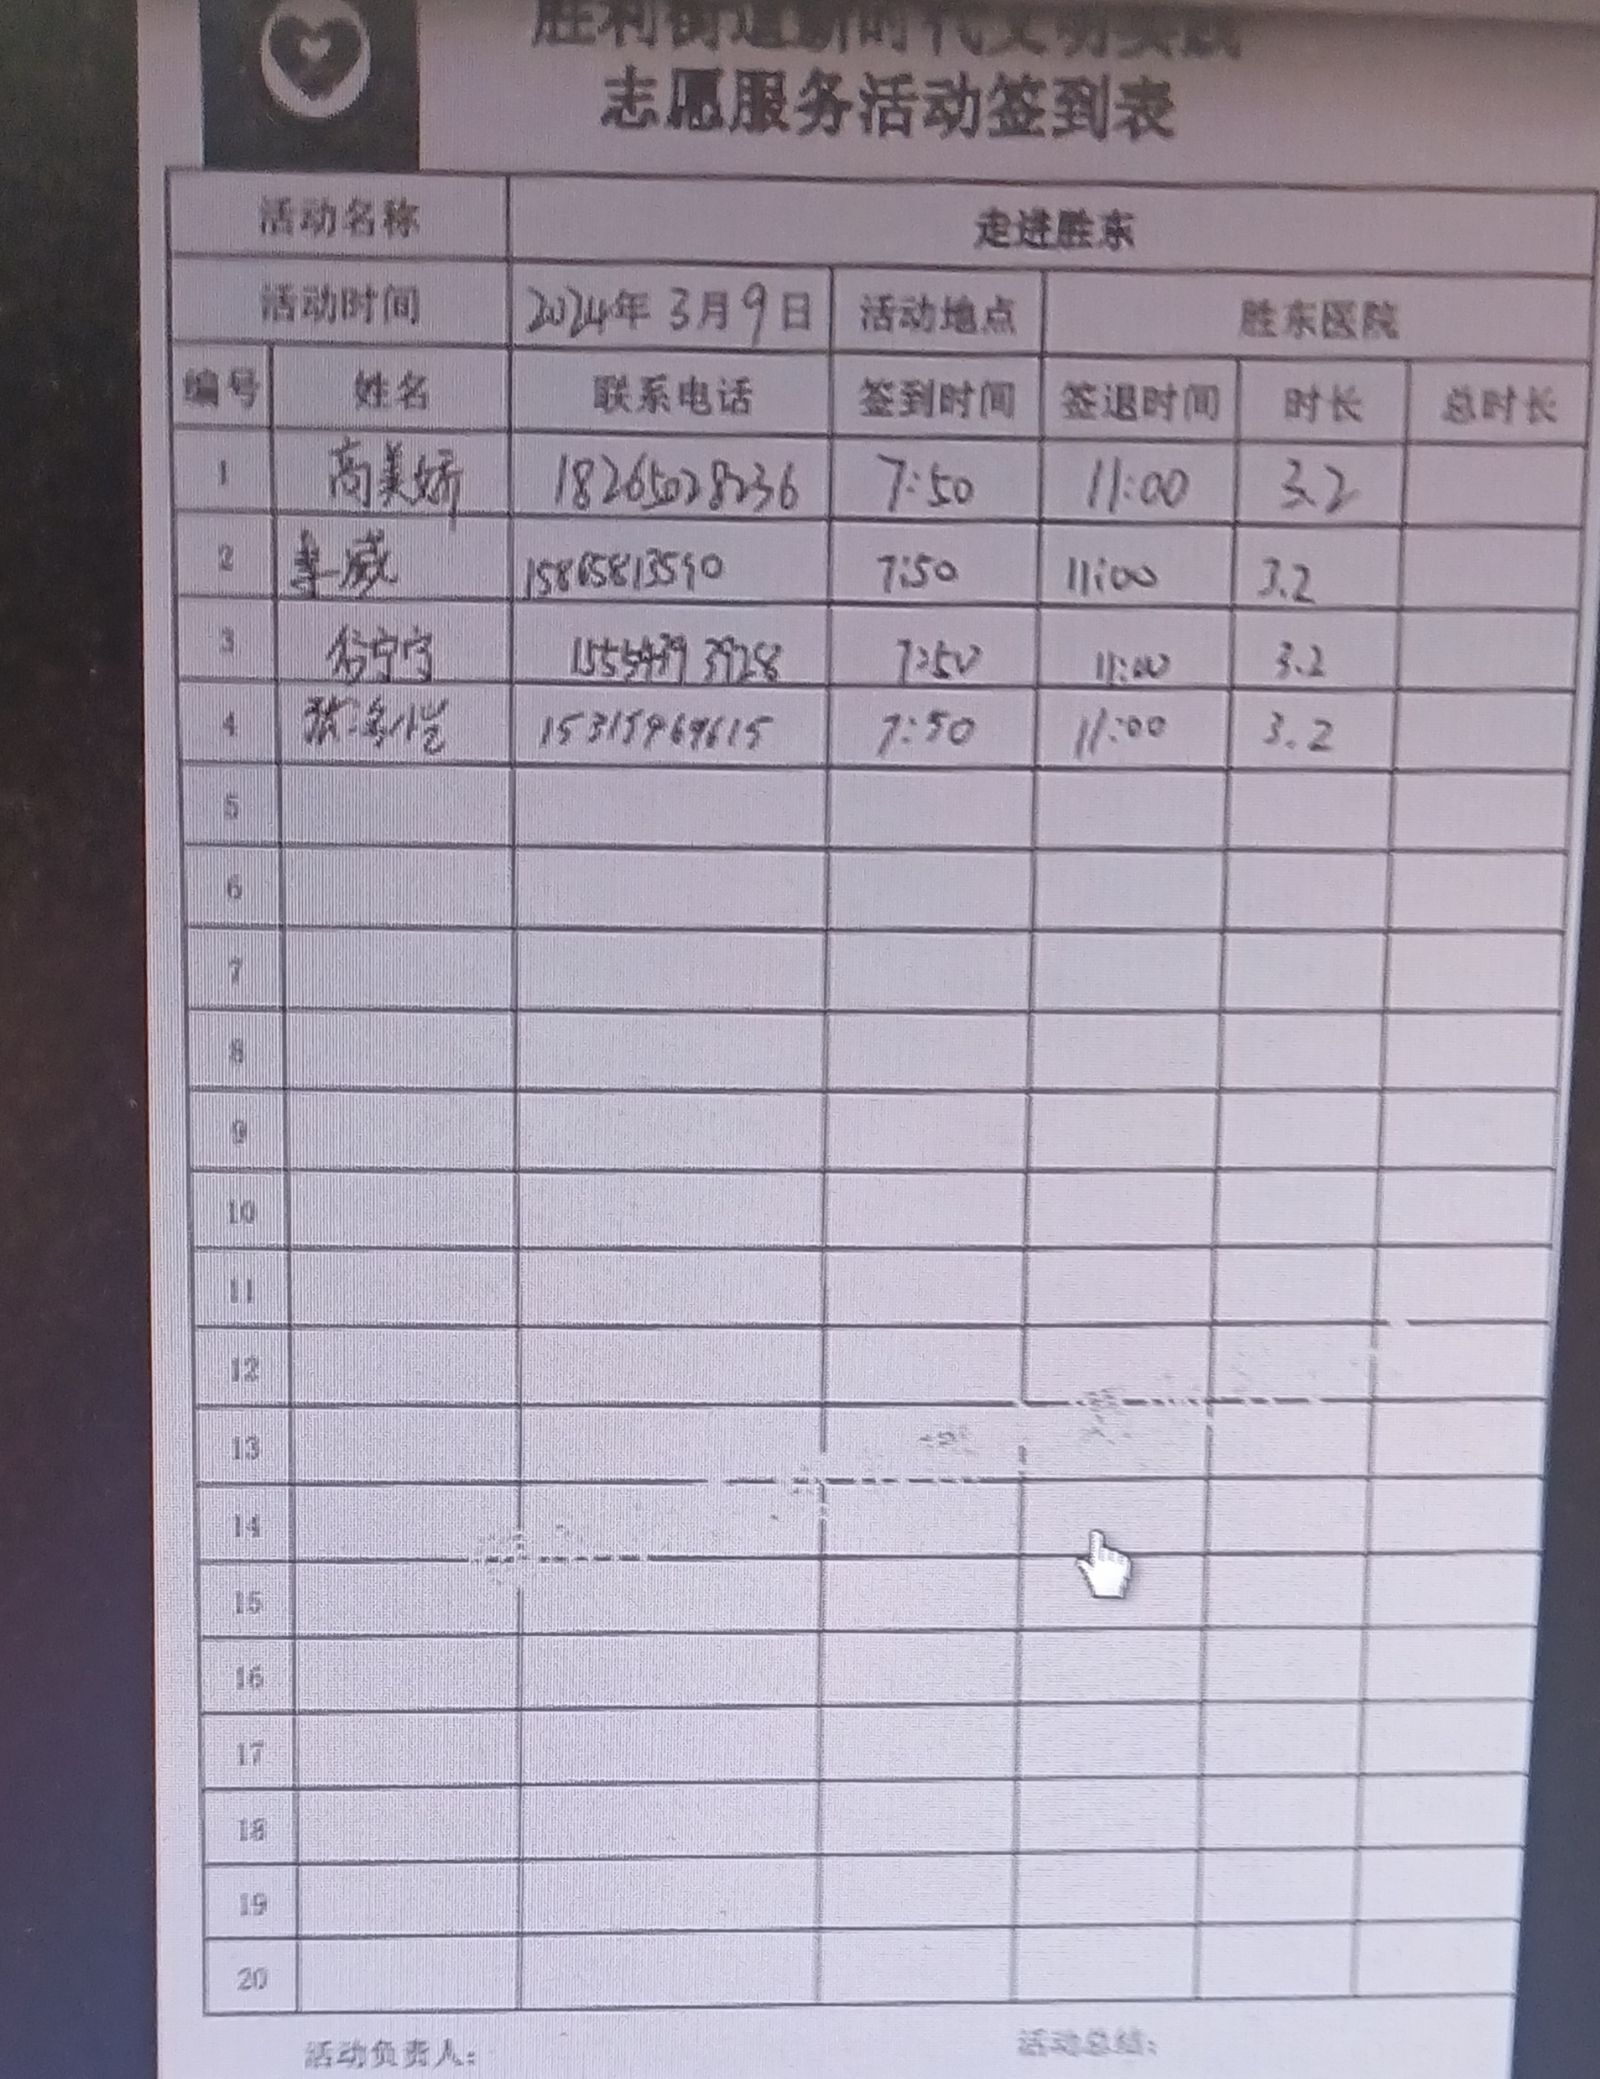 胜利街道新时代文明实践
志愿服务活动签到表
活动名称 走进胜东
活动时间 2024年 3月9日 活动地点 胜东医院
编号 姓名 联系电话 签到时间 签退时间 时长 总时长
1 高美娇 18265028236 7:50 11:00 3.2
2 李威 15865813590 7:50 11:00 3.2
3 7:50 11:00 3.2
4 15315969615 7:50 11:00 3.2
5
6
7
8
9
10
11
12
13
14
15
16
17
18
19
20
活动负责人: 活动总结: